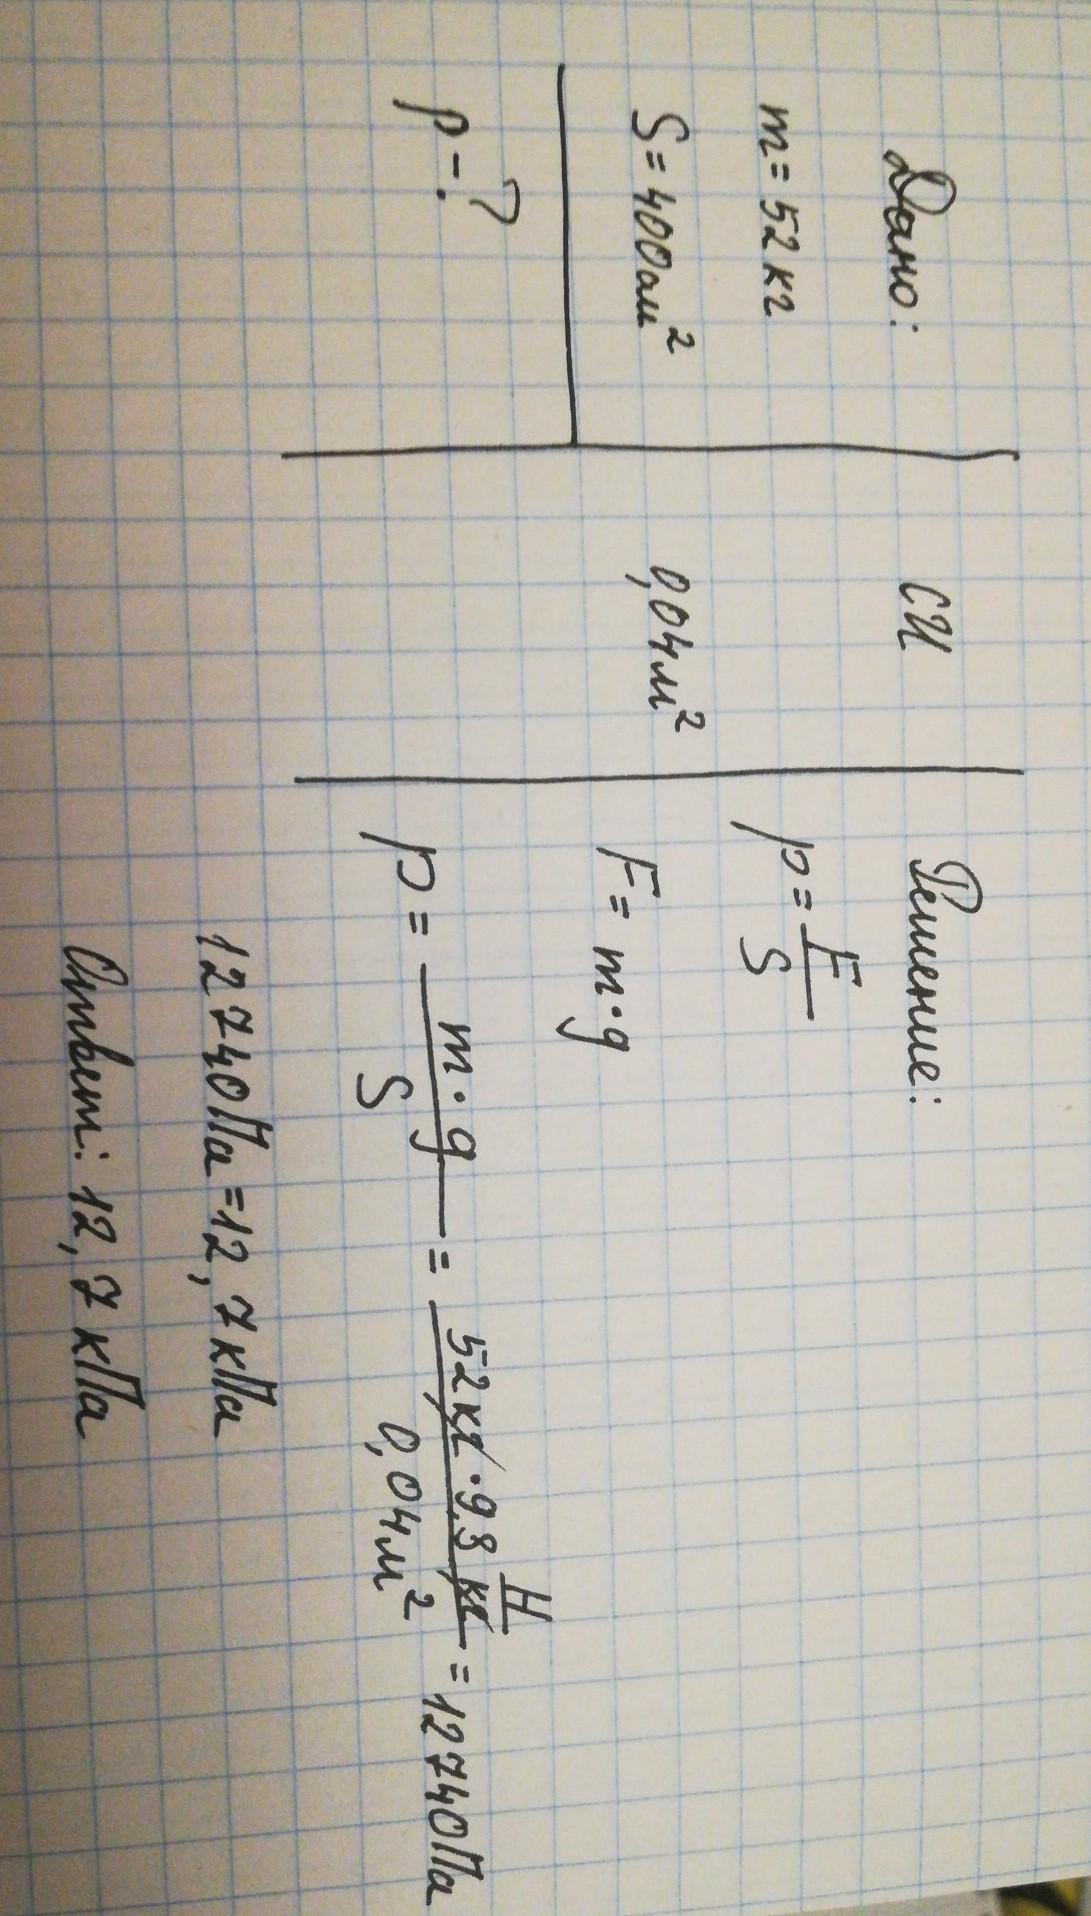 Дано:
m = 52 кг
S = 400 см²
p - ?
СИ
0,04 м²
Решение:
p = F/S
F = m · g
p = m · g / S = 52 кг · 9,8 Н/кг / 0,04 м² = 12740 Па
12740 Па = 12,7 кПа
Ответ: 12,7 кПа